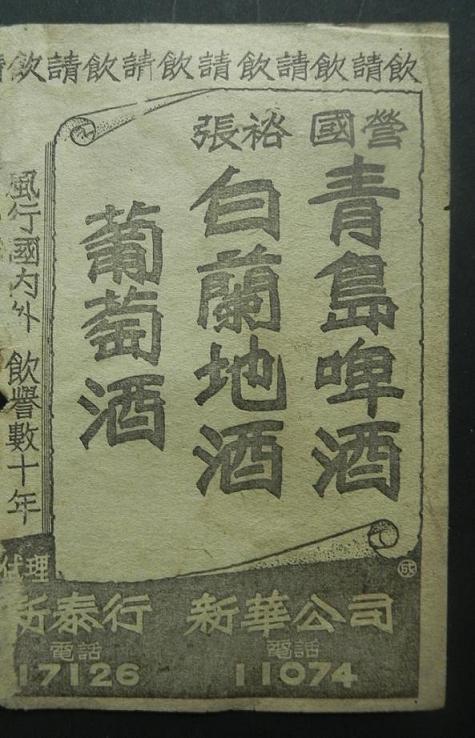 飲請飲請飲請飲請飲請飲
國營
青島啤酒
張裕
白蘭地酒
葡萄酒
風行國內外 飲譽數十年
代理
新華公司
電話
11074
新泰行
電話
17126